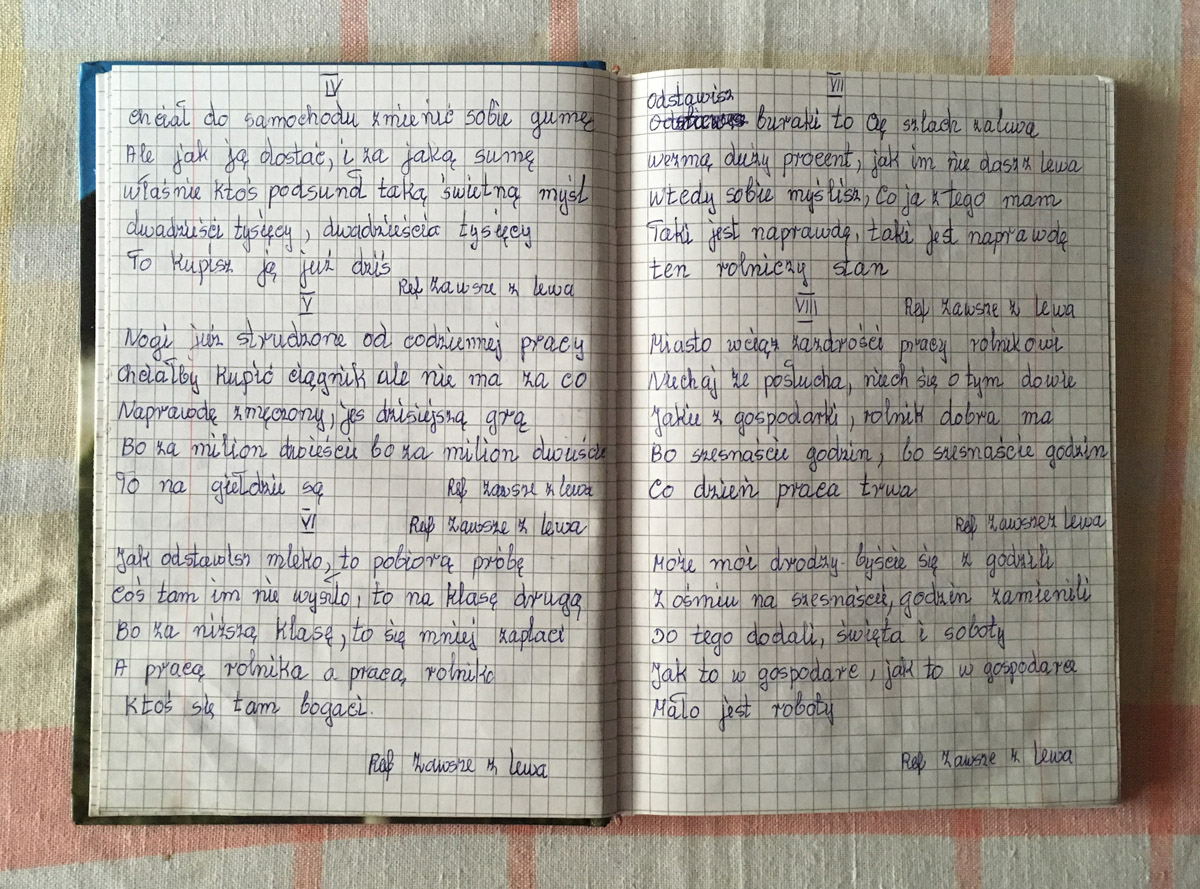 IV
chciał do samochodu zmienić sobie gumę
Ale jak ją dostać, i za jaką sumę
właśnie ktoś podsunął taką świetną myśl
dwadzieści tysięcy, dwadzieścia tysięcy
To kupisz ją już dziś
Ref Zawsze z lewa
V
Nogi już strudzone od codziennej pracy
chciałby kupić ciągnik ale nie ma za co
Naprawdę zmęczony, jes dzisiejszą grą
Bo za milion dwieście bo za milion dwieście
To na giełdzie są
Ref Zawsze z lewa
VI
Ref Zawsze z lewa
Jak odstawisz mleko, to pobiorą próbę
Coś tam im nie wyszło, to na klasę drugą
Bo za niższą klasę, to się mniej zapłaci
A pracą rolnika a pracą rolnika
Ktoś się tam bogaci.
Ref Zawsze z lewa
VII
Odstawisz
buraki to Cię szlach zaliwa
wezmą duży procent, jak im nie dasz z lewa
wtedy sobie myślisz, Co ja z tego mam
Taki jest naprawdę, taki jest naprawdę
ten rolniczy stan
VIII
Ref Zawsze z lewa
Miasto wciąż zazdrości pracy rolnikowi
Niechaj że posłucha, niech się o tym dowie
Jakie z gospodarki, rolnik dobra ma
Bo szesnaście godzin, bo szesnaście godzin
Co dzień praca trwa
Ref Zawsze z lewa
Może moi drodzy byście się z godzili
Z ośmiu na szesnaście, godzin zamienili
Do tego dodali, święta i soboty
Jak to w gospodarce, jak to w gospodarce
Mało jest roboty
Ref Zawsze z lewa